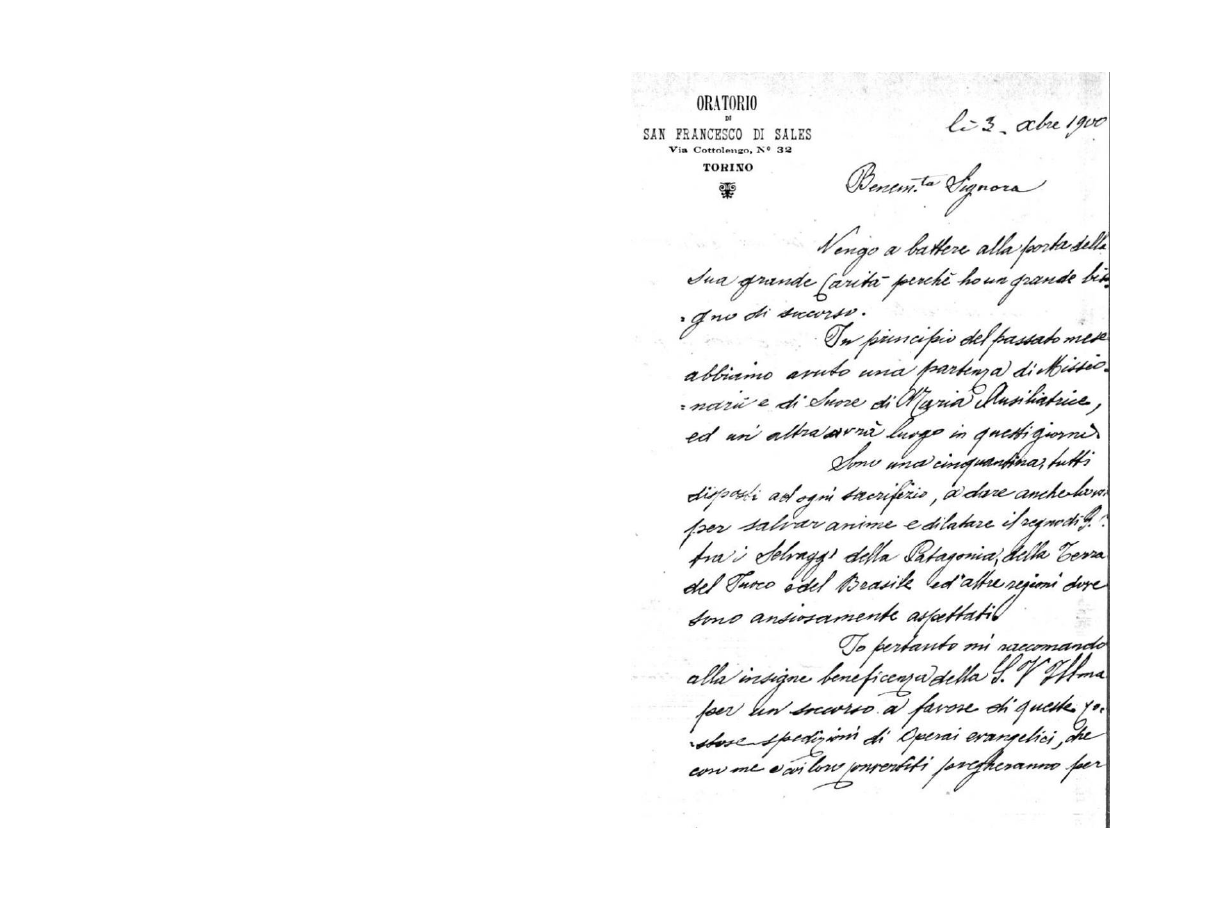 ORATORIO
DI
SAN FRANCESCO DI SALES
Via Cottolengo, Nº 32
TORINO
li 3 - xbre 1900
Benem.ta Signora
Vengo a battere alla porta della
sua grande Carità perchè ho un grande biso
=gno di soccorso.
In principio del passato mese
abbiamo avuto una partenza di Missio=
=narii e di Suore di Maria Ausiliatrice,
ed un' altra avrà luogo in questi giorni.
Sono una cinquantina, tutti
disposti ad ogni sacrifizio, a dare anche
per salvar anime e dilatare il regno di G.
tra i Selvaggi della Patagonia, della Terra
del Fuoco e del Brasile ed altre regioni dove
sono ansiosamente aspettati.
Io pertanto mi raccomando
alla insigne beneficenza della S. V. Ill.ma
per un soccorso a favore di queste
spedizioni di Operai evangelici, che
con me e coi loro convertiti pregheranno per